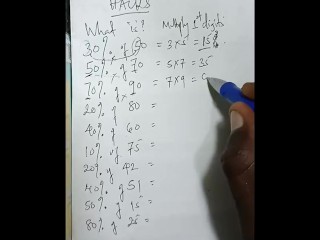 HACKS
What is? Multiply 1st digits
30% of 50 = 3×5 = 15
50% of 70 = 5×7 = 35
70% of 90 = 7×9 = 6
20% of 80 =
40% of 60 =
10% of 75 =
20% of 42 =
40% of 51 =
50% of 15 =
80% of 25 =